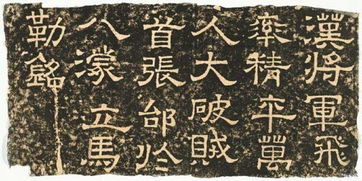 漢將軍飛
率精卒萬
人大破賊
首張郃於
八濛立馬
勒銘